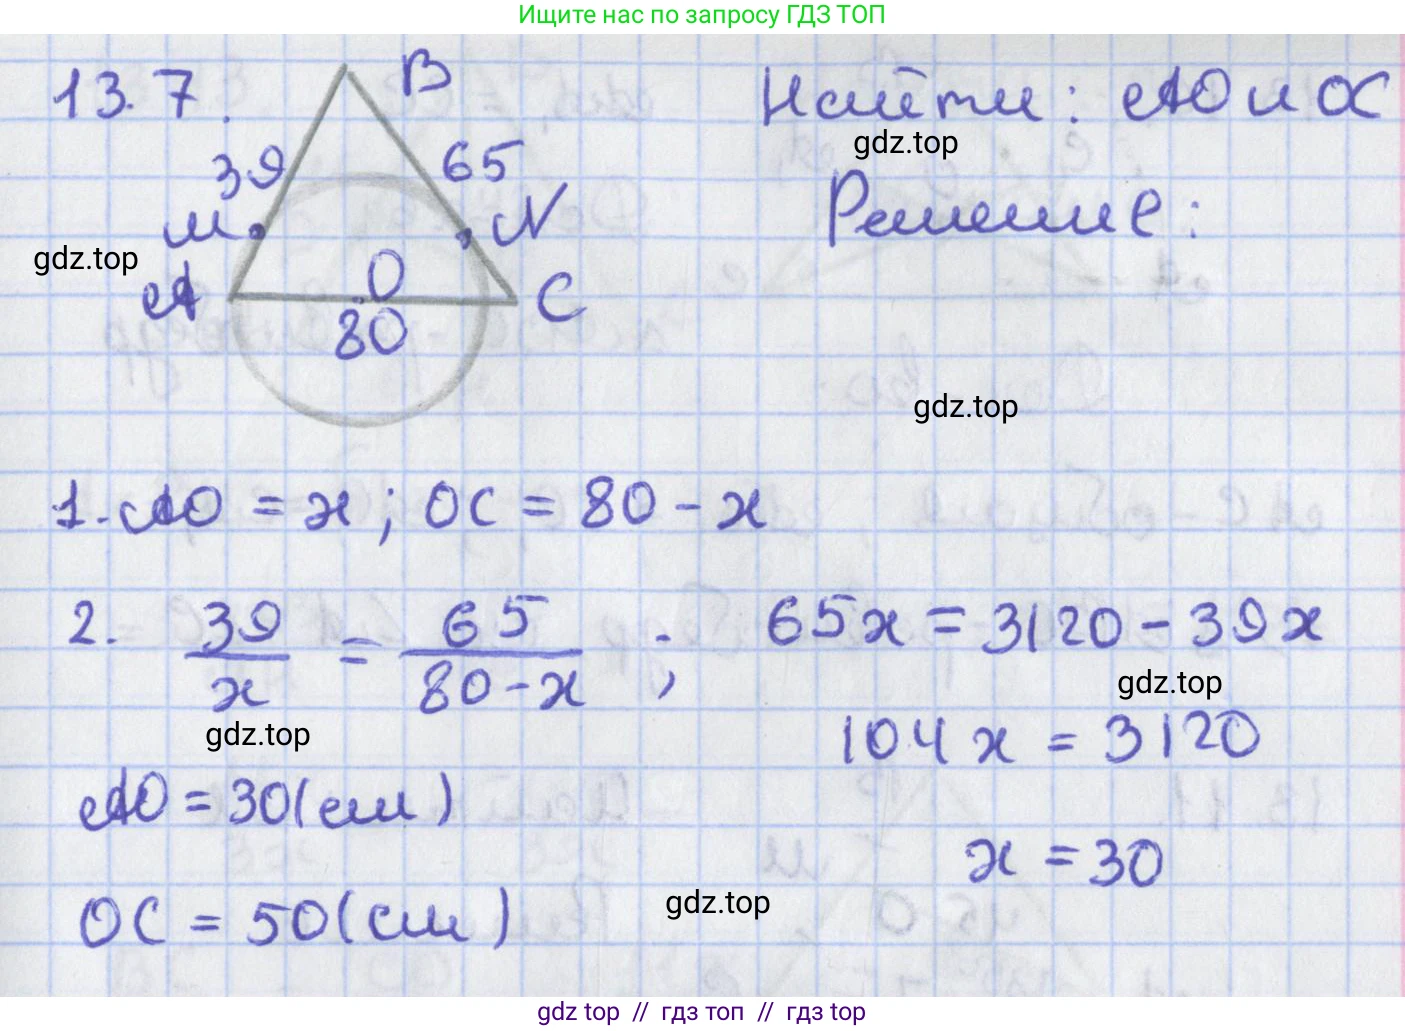 Ищите нас по запросу ГДЗ ТОП
13.7.
B
39
65
M
N
A
O
C
80
Найти: AO и OC
gdz.top
Решение:
gdz.top
gdz.top
1. AO = x; OC = 80 - x
2. 39/x = 65/(80 - x) ; 65x = 3120 - 39x
gdz.top
gdz.top
104x = 3120
AO = 30 (см)
x = 30
OC = 50 (см)
gdz.top
gdz top // гдз топ // гдз top